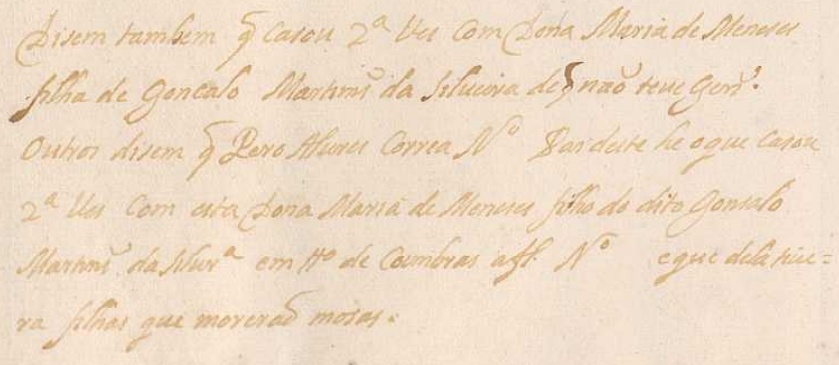 Disem tambem q̃ Casou 2ª Ves Com Dona Maria de Meneses
filha de Goncalo Martins da silueira de q̃ naõ teue Gers.
Outros disem q̃ Pero Alures Correa Nº Pai deste he o que Casou
2ª Ues Com esta Dona Maria de Meneses filha do dito Gonsalo
Martins da silurª em ttº de Coimbras a fl. Nº e que dela tiue=
ra filhas que moreraõ mosas.